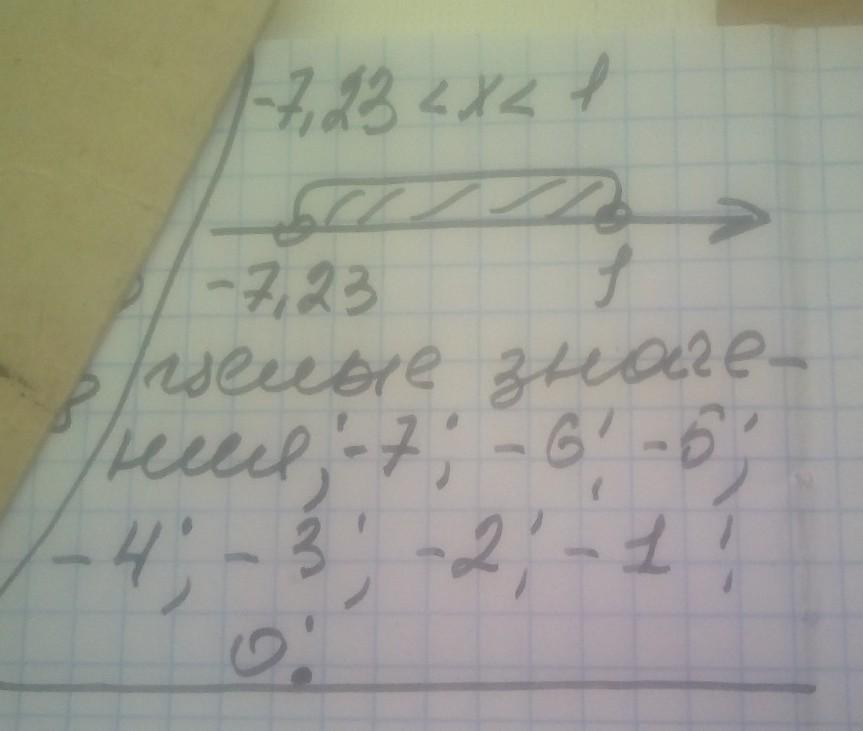 -7,23 < x < 1
-7,23 1
целые значе-
ния; -7; -6; -5;
-4; -3; -2; -1;
0.